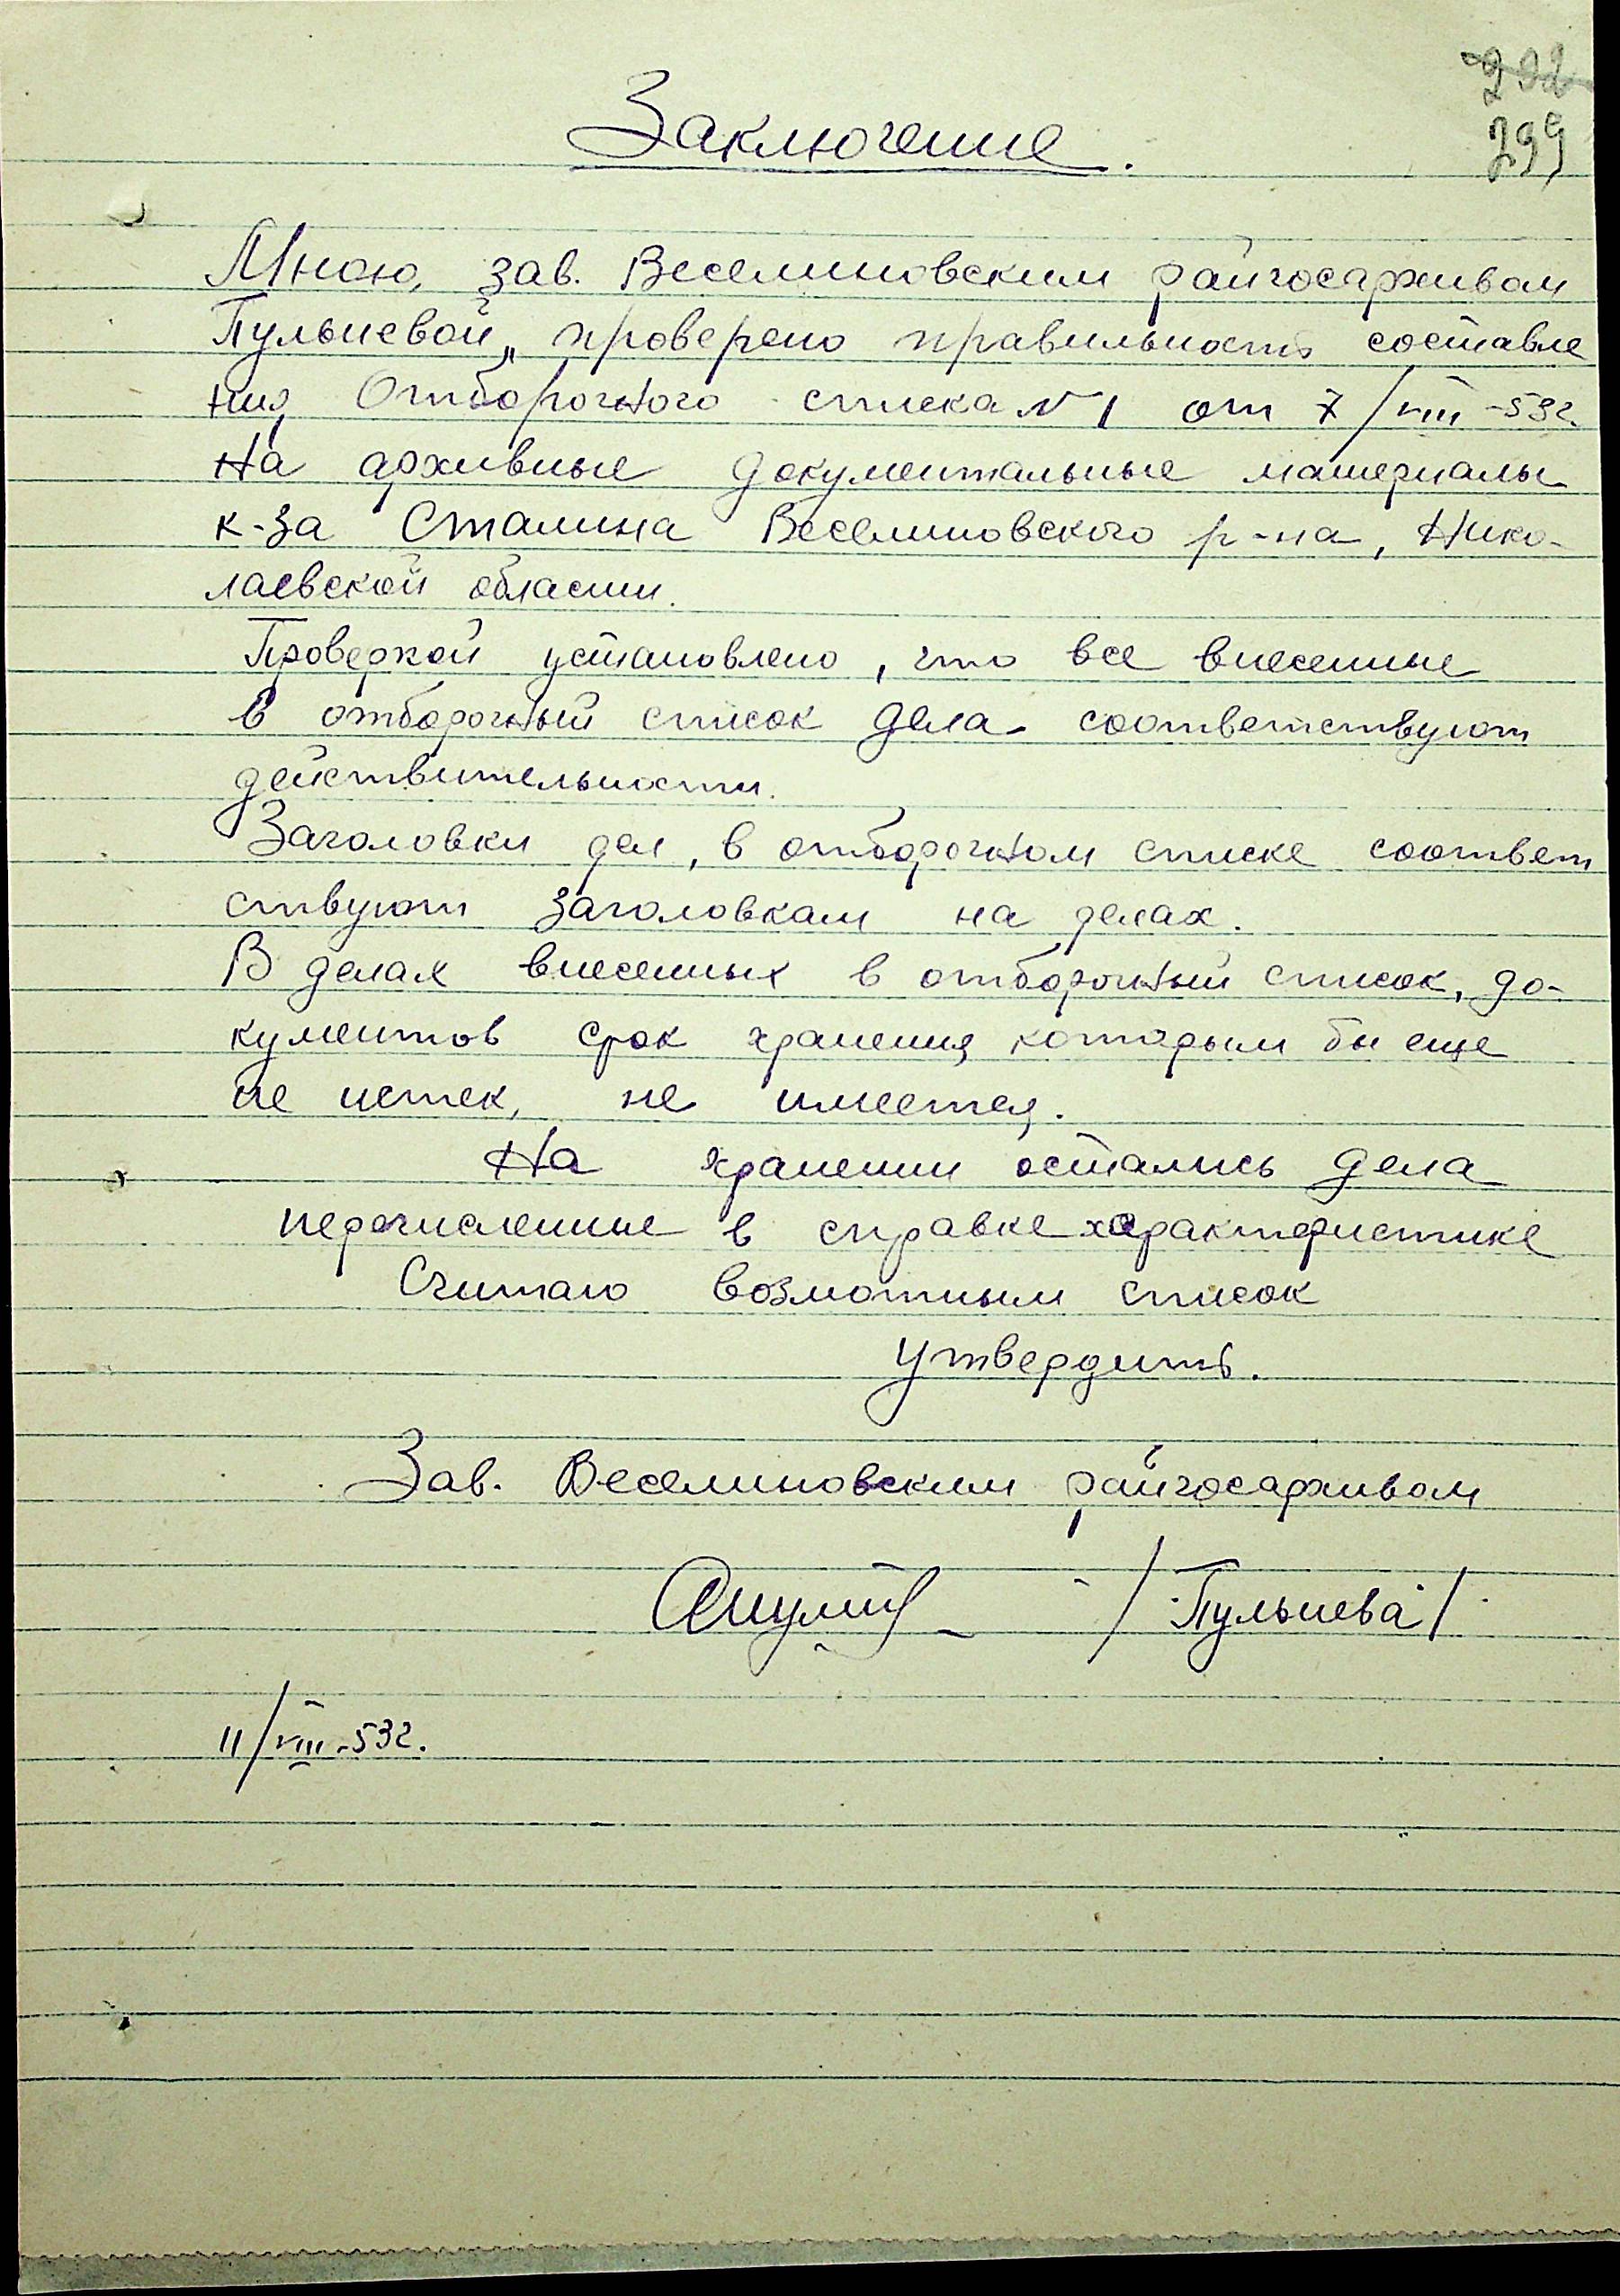 292
299
Заключение.
Мною, зав. Веселиновским райгосархивом
Пульневой, проверено правильность составле
ния Отборочного списка N 1 от 7/VIII-53г.
На архивные документальные материалы
к-за Сталина Веселиновского р-на, Нико-
лаевской области.
Проверкой установлено, что все внесенные
в отборочный список дела соответствуют
действительности.
Заголовки дел, в отборочном списке соответ
ствуют заголовкам на делах.
В делах внесенных в отборочный список, до-
кументов срок хранения которым бы еще
не истек, не имеется.
На хранении остались дела
перечисленные в справке характеристике
Считаю возможным список
утвердить.
Зав. Веселиновским райгосархивом
/Пульнева/
11/VIII-53г.